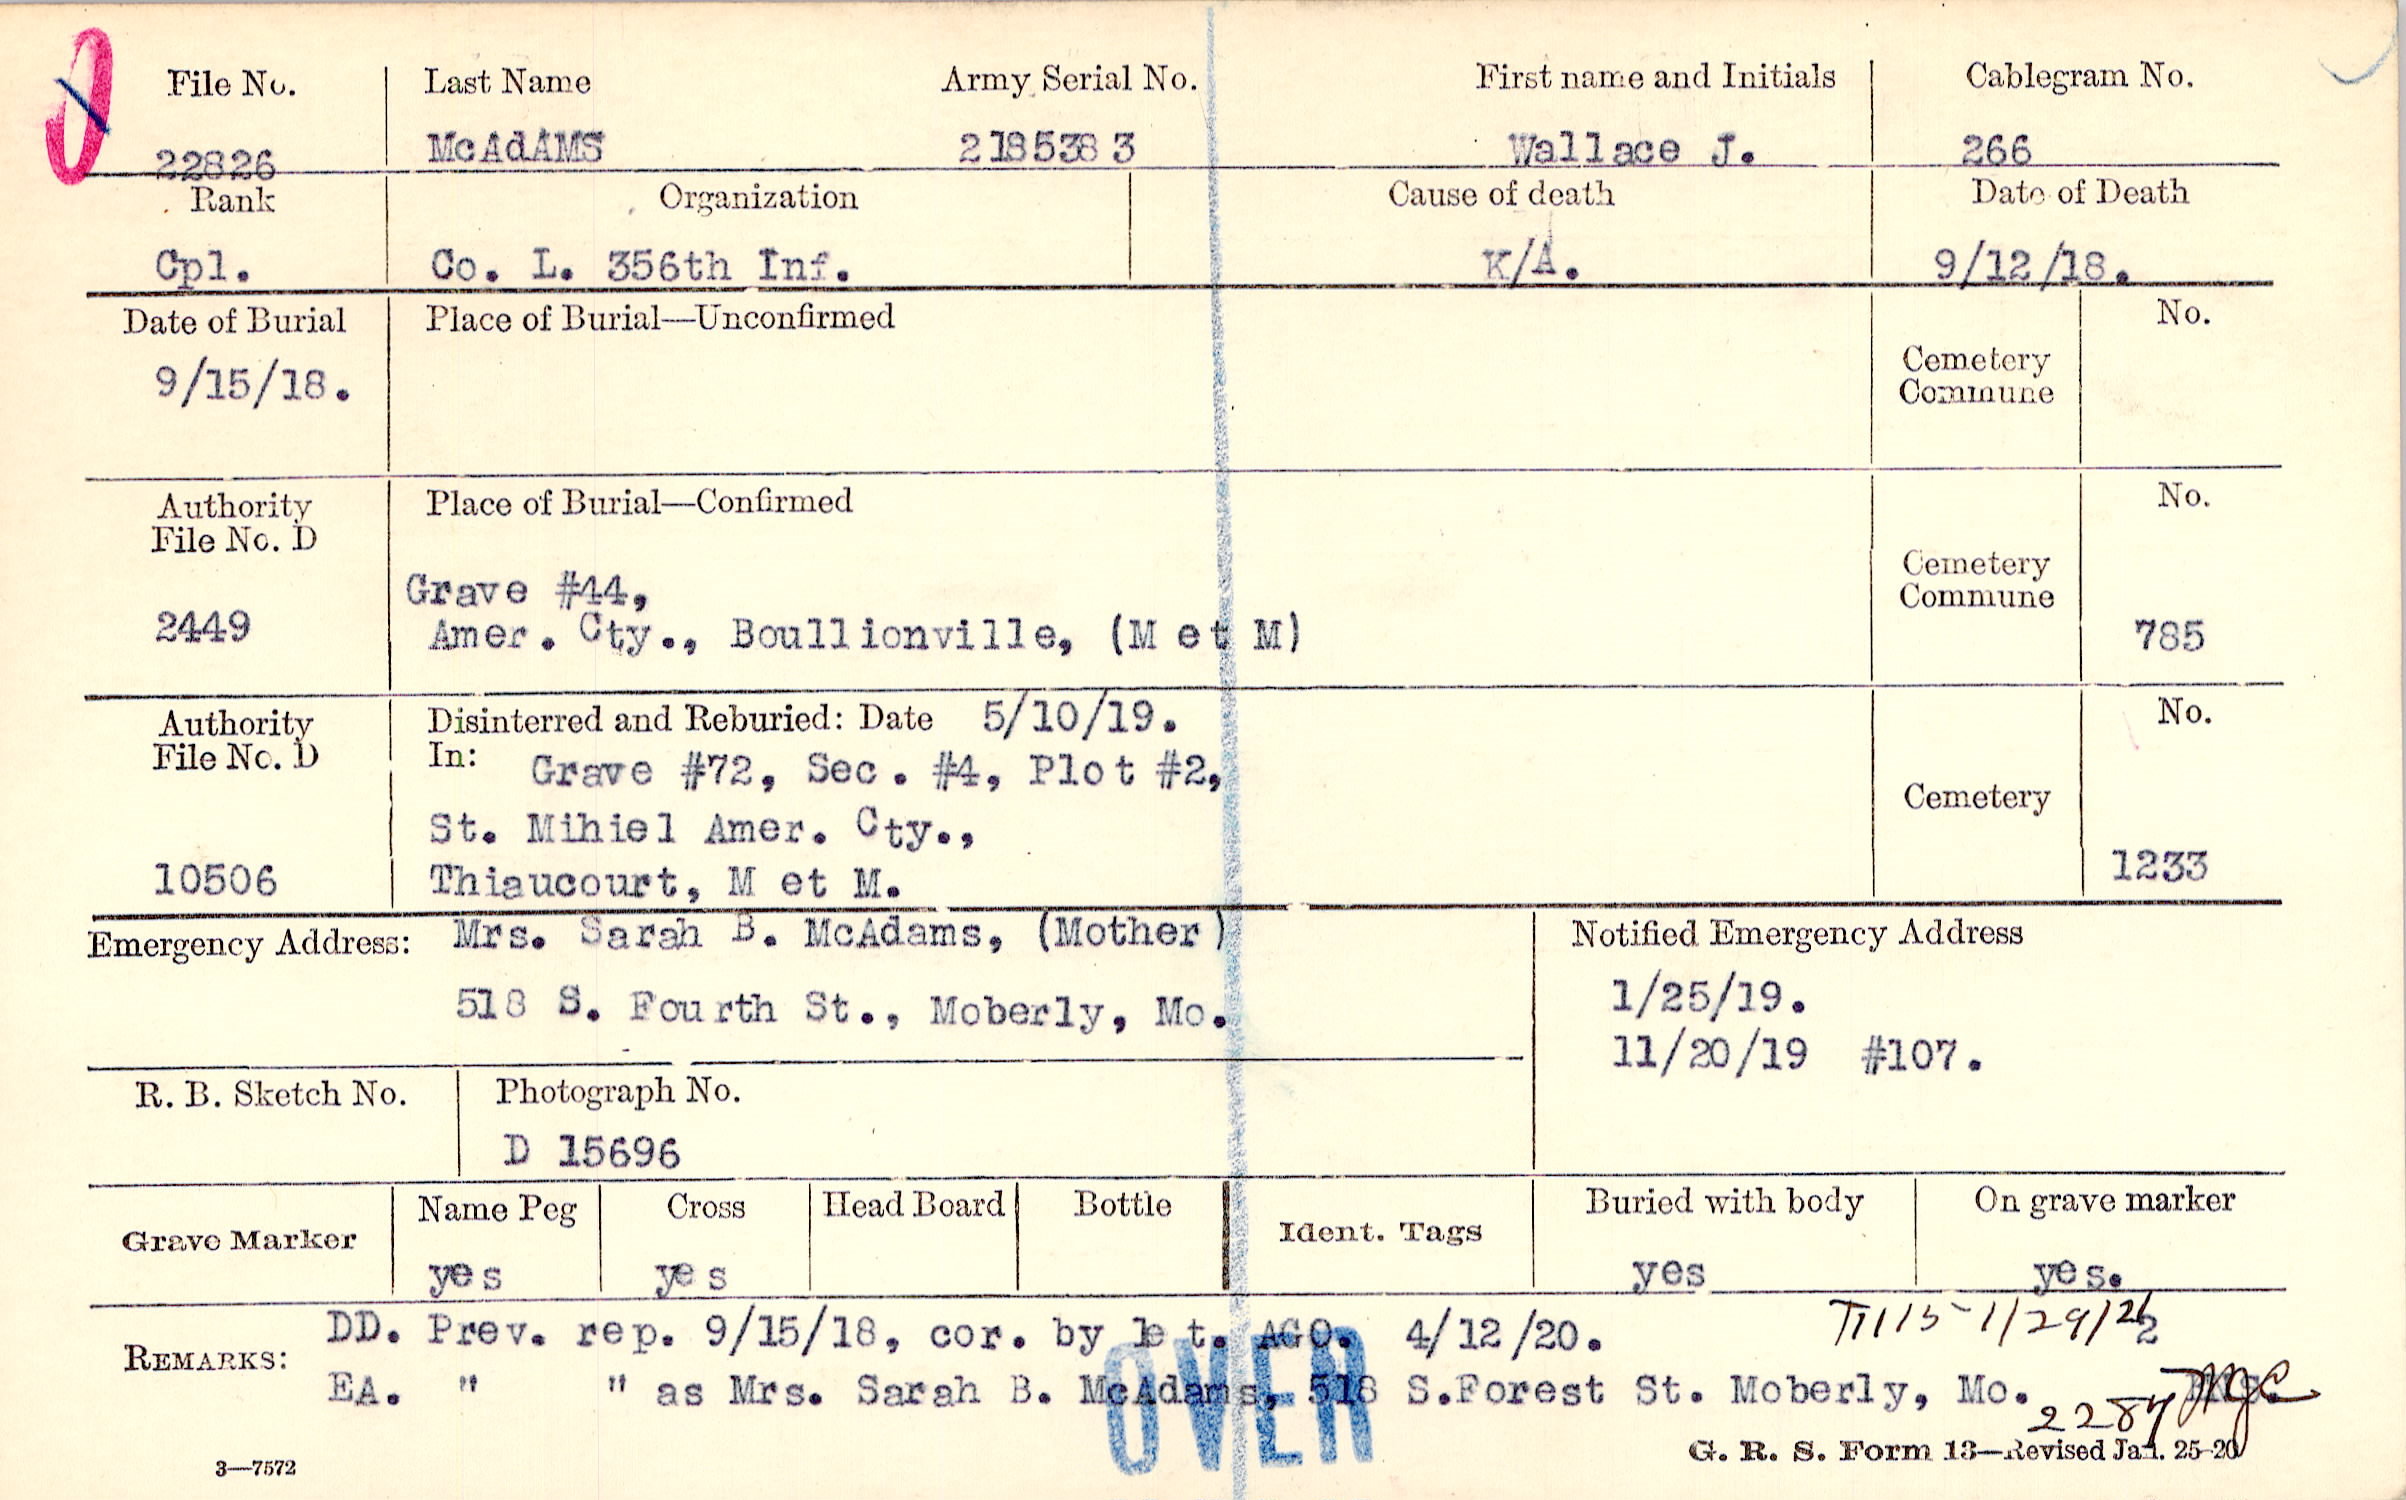 File No. Last Name Army Serial No. First name and Initials Cablegram No.
22826 McAdAMS 2185383 Wallace J. 266
Rank Organization Cause of death Date of Death
Cpl. Co. L. 356th Inf. K/A. 9/12/18.
Date of Burial Place of Burial—Unconfirmed No.
9/15/18.
Cemetery
Commune
Authority Place of Burial—Confirmed No.
File No. D
Cemetery
Commune
Grave #44,
2449 Amer. Cty., Boullionville, (M et M) 785
Authority Disinterred and Reburied: Date 5/10/19. No.
File No. D In: Grave #72, Sec. #4, Plot #2,
Cemetery
St. Mihiel Amer. Cty.,
10506 Thiaucourt, M et M. 1233
Emergency Address: Mrs. Sarah B. McAdams, (Mother) Notified Emergency Address
518 S. Fourth St., Moberly, Mo. 1/25/19.
11/20/19 #107.
R. B. Sketch No. Photograph No.
D 15696
Grave Marker Name Peg Cross Head Board Bottle Ident. Tags Buried with body On grave marker
yes yes yes yes.
REMARKS: DD. Prev. rep. 9/15/18, cor. by let. AGO. 4/12/20.
EA. " " as Mrs. Sarah B. McAdams, 518 S.Forest St. Moberly, Mo.
OVER
3—7572 G. R. S. Form 13—Revised Jan. 25-20